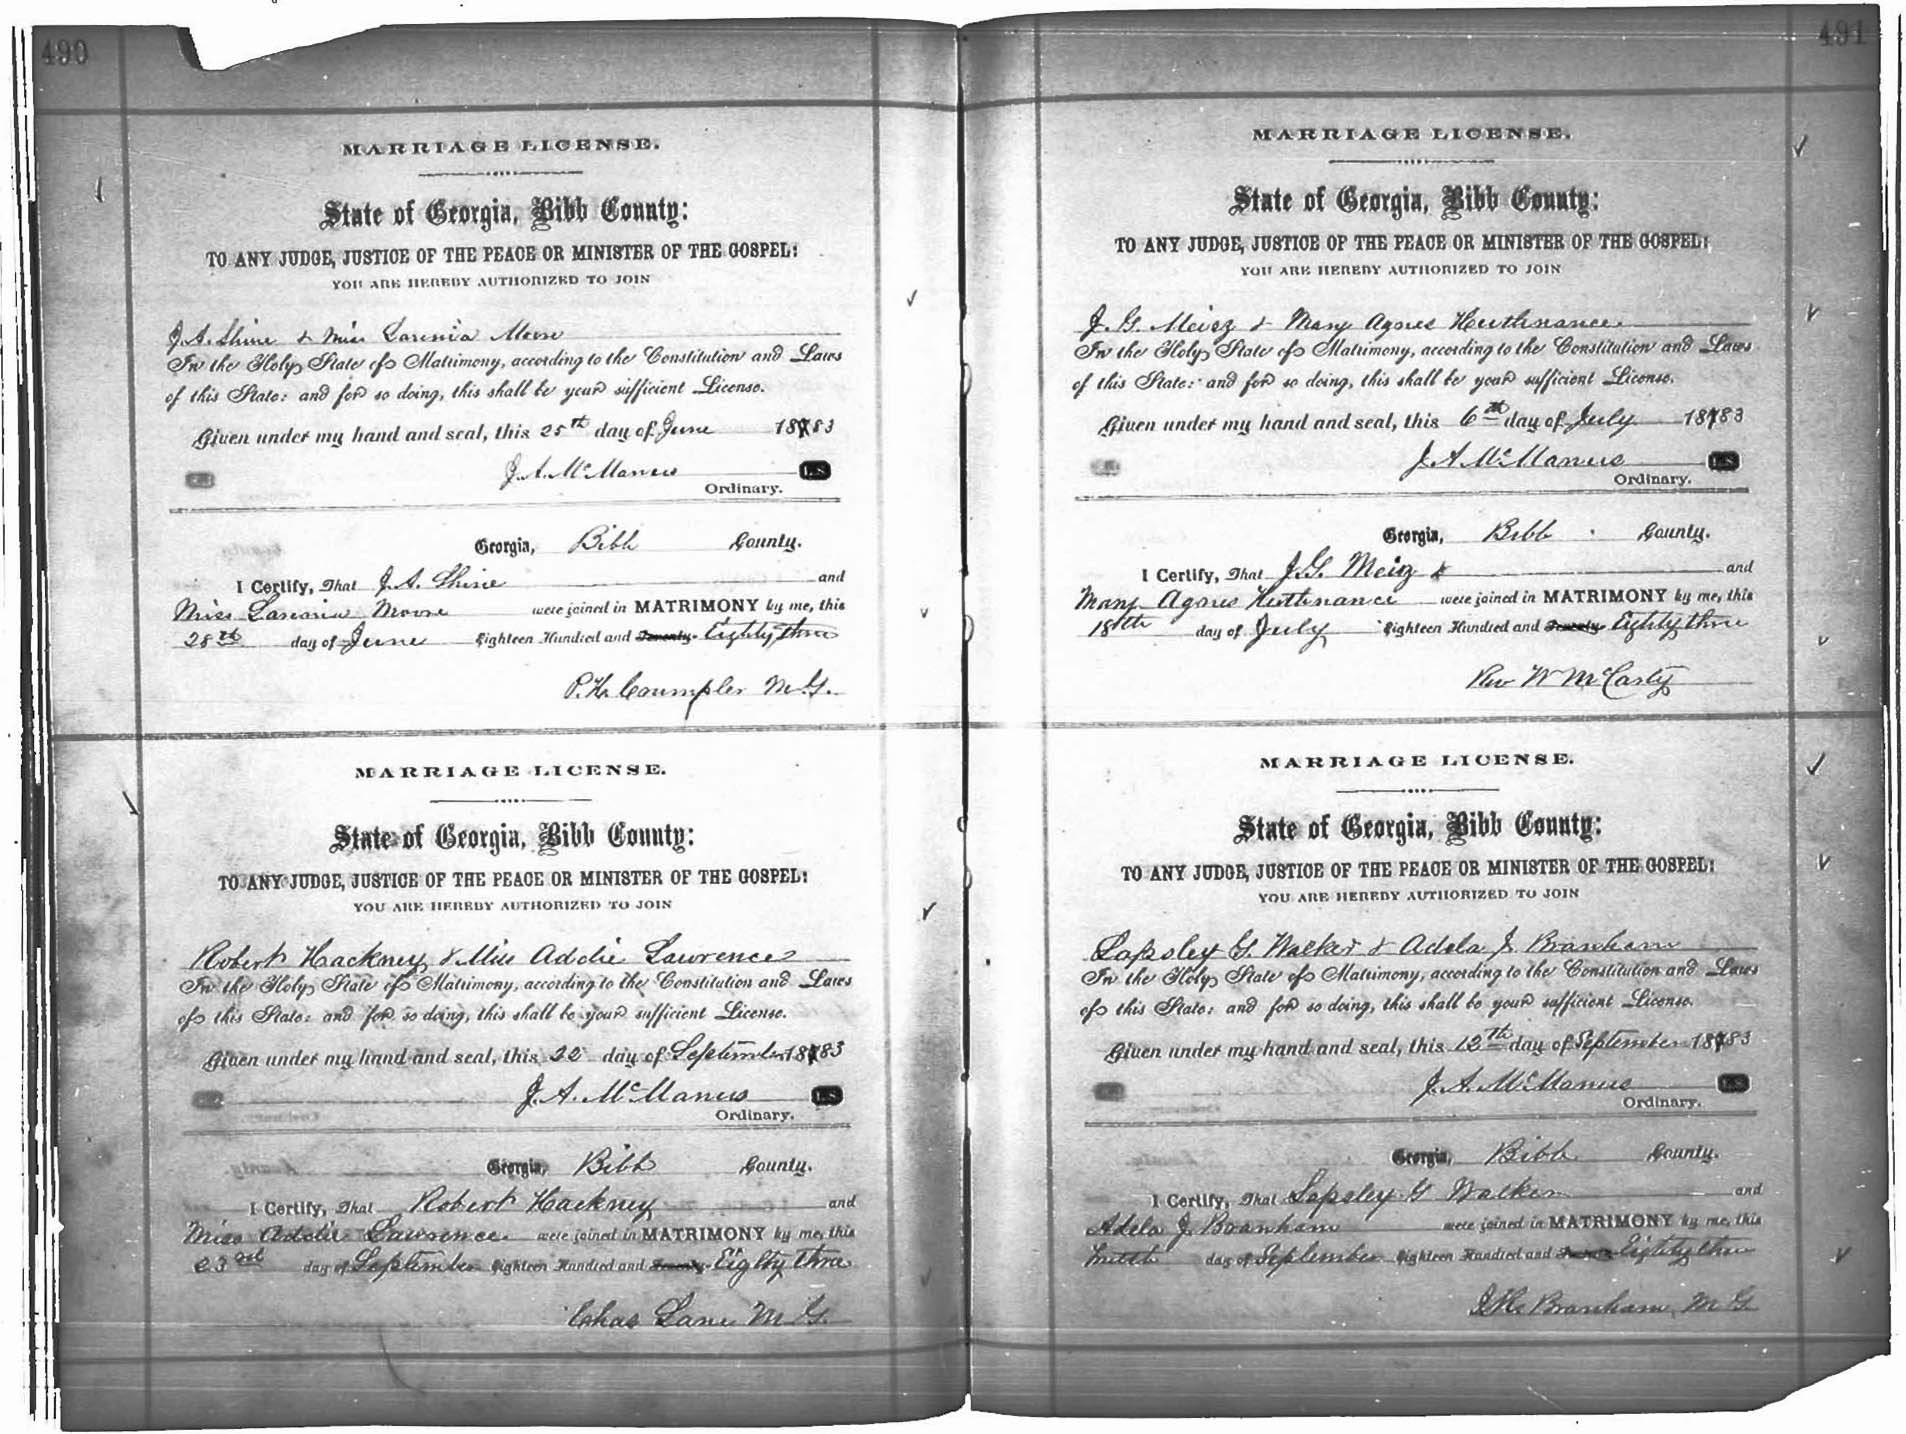 490
MARRIAGE LICENSE.
State of Georgia, Bibb County:
TO ANY JUDGE, JUSTICE OF THE PEACE OR MINISTER OF THE GOSPEL:
YOU ARE HEREBY AUTHORIZED TO JOIN
J. A. Shine & Miss Lavinia Moore
In the Holy State of Matrimony, according to the Constitution and Laws
of this State: and for so doing, this shall be your sufficient License.
Given under my hand and seal, this 25th day of June 1883
J. A. McManus L.S.
Ordinary.
Georgia, Bibb County.
I Certify, That J. A. Shine and
Miss Lavinia Moore were joined in MATRIMONY by me, this
28th day of June Eighteen Hundred and Seventy- Eighty three
P. H. Crumpler M.G.
MARRIAGE LICENSE.
State of Georgia, Bibb County:
TO ANY JUDGE, JUSTICE OF THE PEACE OR MINISTER OF THE GOSPEL:
YOU ARE HEREBY AUTHORIZED TO JOIN
Robert Hackney & Miss Addie Lawrence
In the Holy State of Matrimony, according to the Constitution and Laws
of this State: and for so doing, this shall be your sufficient License.
Given under my hand and seal, this 22 day of September 1883
J. A. McManus L.S.
Ordinary.
Georgia, Bibb County.
I Certify, That Robert Hackney and
Miss Addie Lawrence were joined in MATRIMONY by me, this
23rd day of September Eighteen Hundred and Seventy- Eighty three
Chas Lane M.G.
491
MARRIAGE LICENSE.
State of Georgia, Bibb County:
TO ANY JUDGE, JUSTICE OF THE PEACE OR MINISTER OF THE GOSPEL:
YOU ARE HEREBY AUTHORIZED TO JOIN
J. G. Meiz & Mary Agnes Huthnance
In the Holy State of Matrimony, according to the Constitution and Laws
of this State: and for so doing, this shall be your sufficient License.
Given under my hand and seal, this 6th day of July 1883
J. A. McManus L.S.
Ordinary.
Georgia, Bibb County.
I Certify, That J. G. Meiz & and
Mary Agnes Huthnance were joined in MATRIMONY by me, this
18th day of July Eighteen Hundred and Seventy- Eighty three
Rev W McCarty
MARRIAGE LICENSE.
State of Georgia, Bibb County:
TO ANY JUDGE, JUSTICE OF THE PEACE OR MINISTER OF THE GOSPEL:
YOU ARE HEREBY AUTHORIZED TO JOIN
Lapsley G. Walker & Adela J. Branham
In the Holy State of Matrimony, according to the Constitution and Laws
of this State: and for so doing, this shall be your sufficient License.
Given under my hand and seal, this 12th day of September 1883
J. A. McManus L.S.
Ordinary.
Georgia, Bibb County.
I Certify, That Lapsley G Walker and
Adela J. Branham were joined in MATRIMONY by me, this
day of September Eighteen Hundred and Seventy- Eighty three
Branham, M G